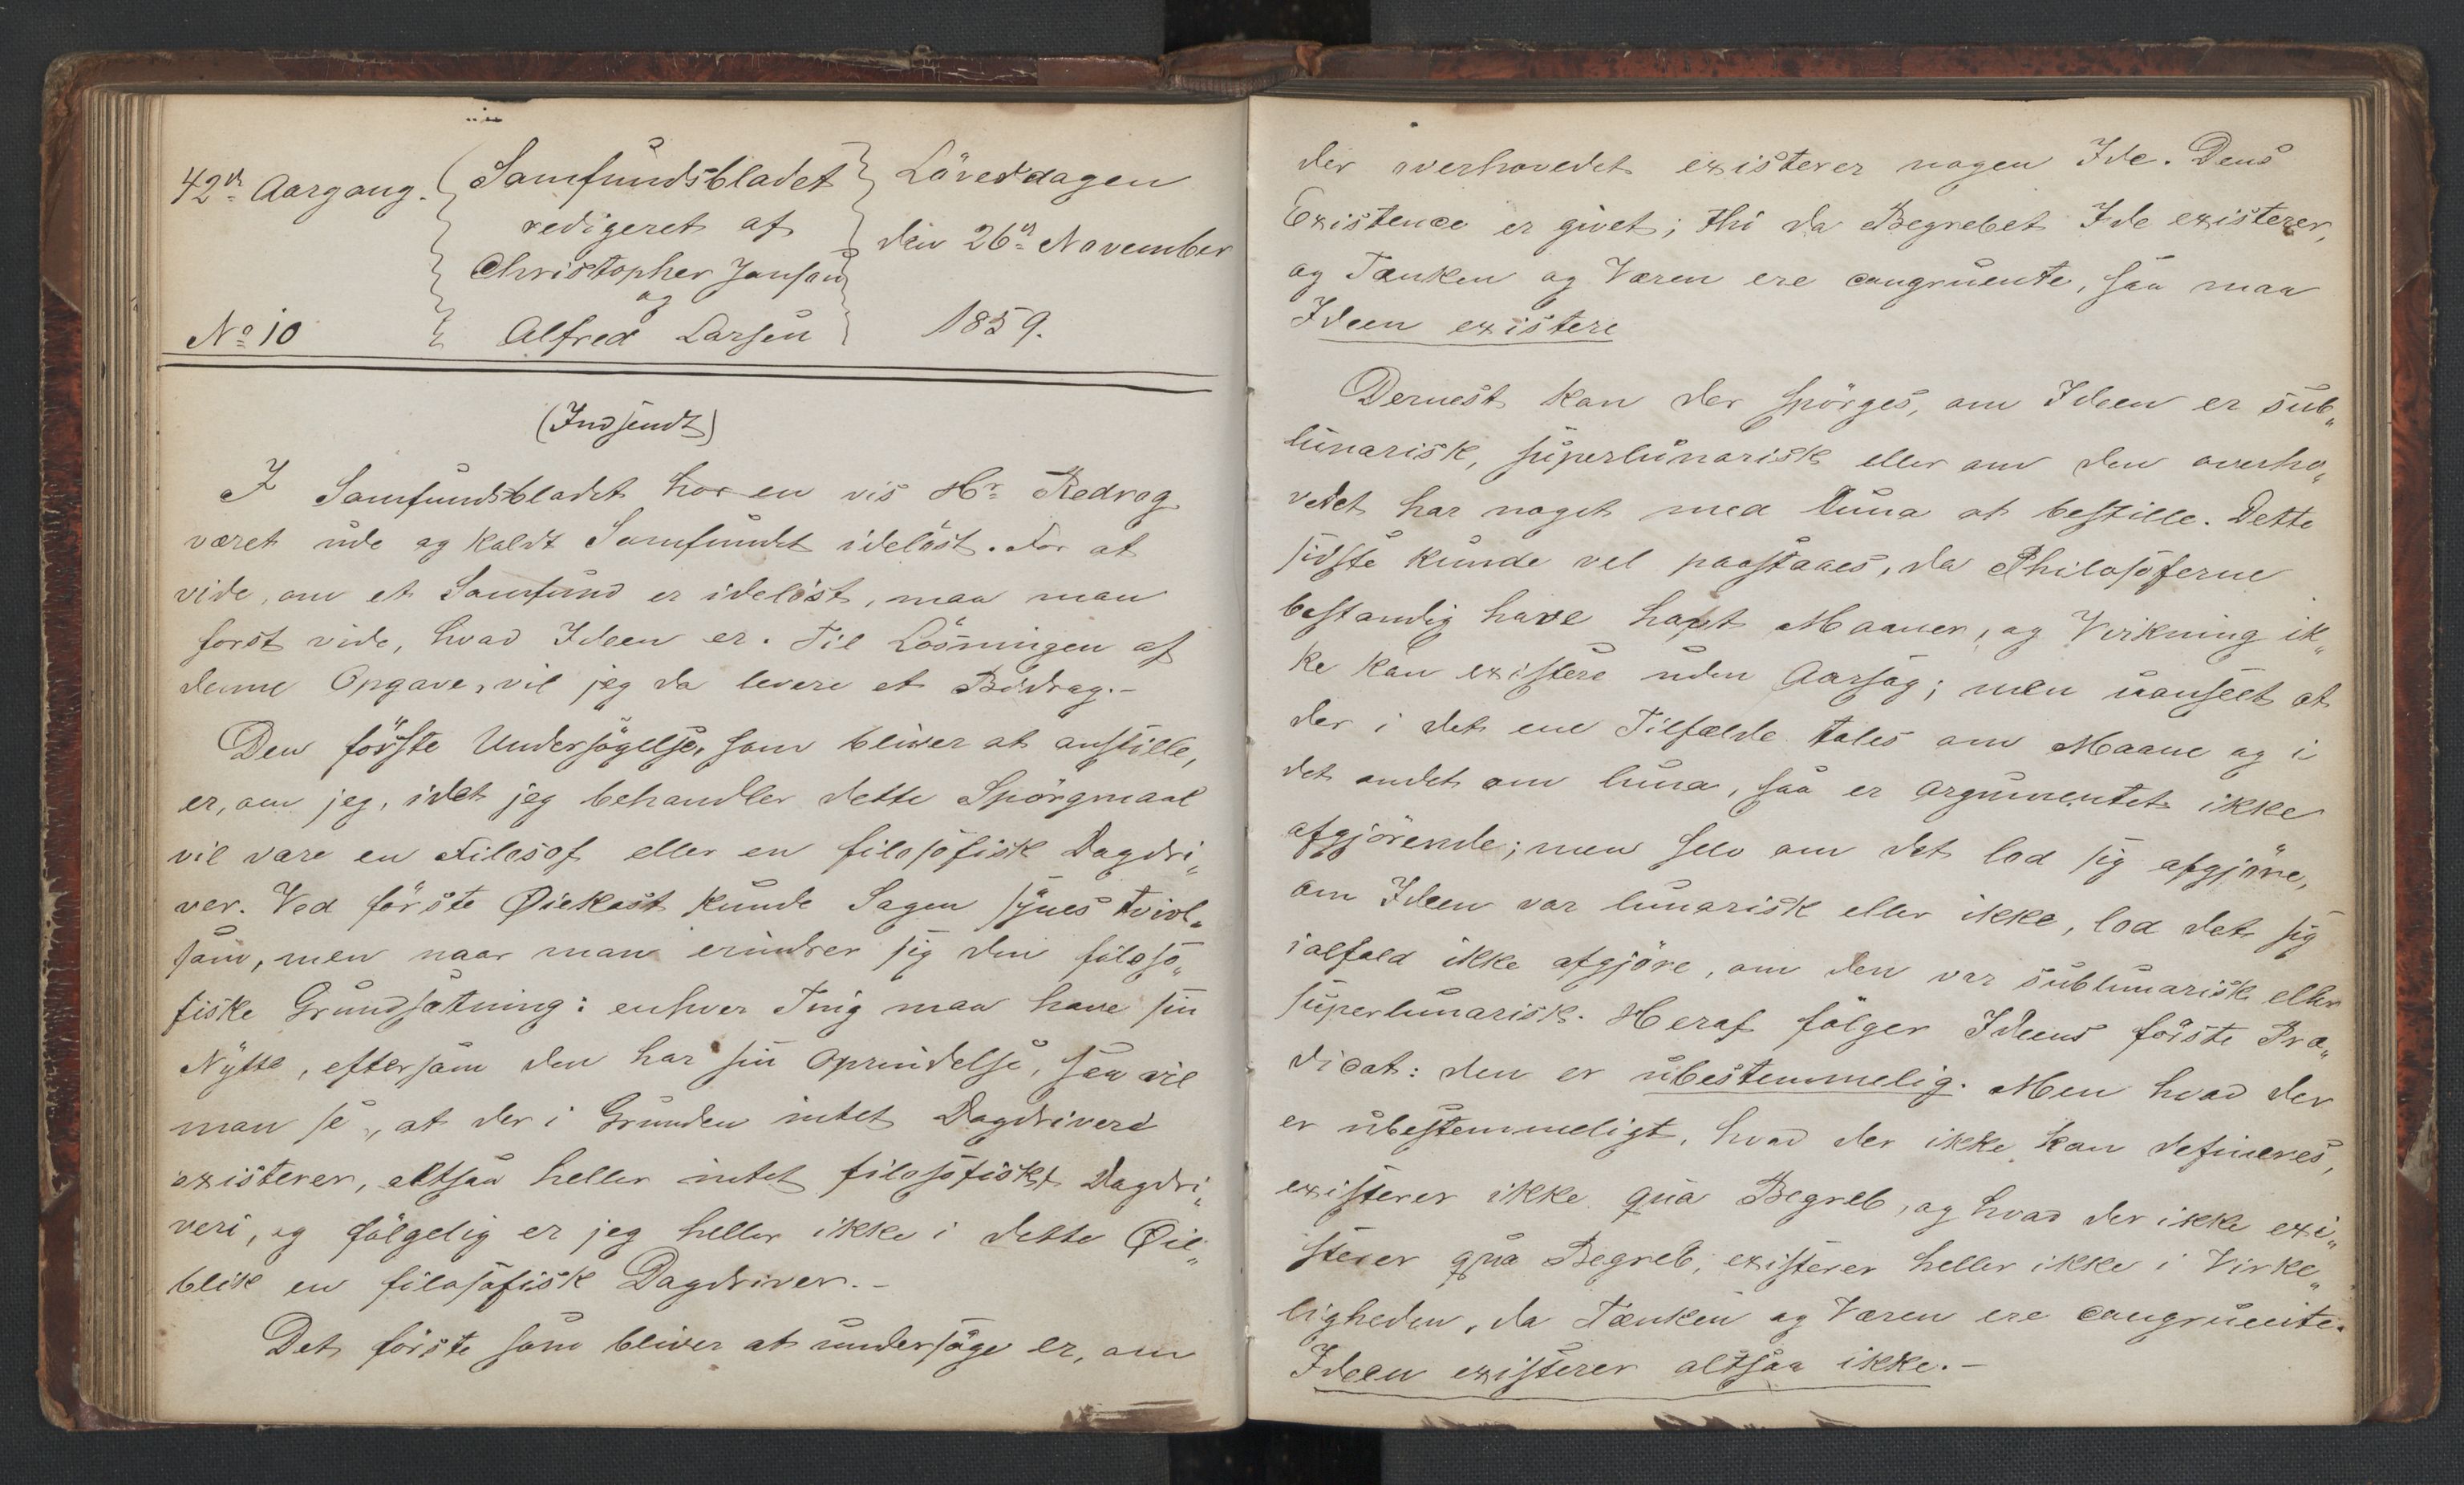 42de Aargang.
Samfundsbladet
redigeret af
Christopher Janson
og
Alfred Larsen
Löverdagen
den 26de November
1859.
No 10
(Indsendt)
I Samfundsbladet har en vis Hr. Redrag
været ude og kaldt Samfundet idelöst. For at
vide, om et Samfund er idelöst, maa man
först vide, hvad Ideen er. Til Lösningen af
denne Opgave, vil jeg da levere et Bidrag.-
Den förste Undersögelse, som bliver at anstille,
er, om jeg, idet jeg behandler dette Spörgmaal
vil være en Filosof eller en filosofisk Dagdri„
ver. Ved förste Øiekast kunde Sagen synes tvivl„
som, men naar man erindrer sig den filoso„
fiske Grundsætning: enhver Ting maa have sin
Nytte, eftersom den har sin Oprindelse, saa vil
man se, at der i Grunden intet Dagdriveri
existerer, altsaa heller intet filosofiskt Dagdri„
veri, og fölgelig er jeg heller ikke i dette Øie„
blik en filosofisk Dagdriver.-
Det förste som bliver at undersöge er, om
der overhovedet existerer nogen Ide. Dens
Existence er givet; thi da Begrebet Ide existerer,
og Tænken og Væren ere congruente, saa maa
Ideen existere
Dernest kan der spörges, om Ideen er sub„
lunarisk, superlunarisk eller om den overho„
vedet har noget med luna at bestille. Dette
sidste kunde vel paastaaes, da Philosoferne
bestandig have havt Maaner, og Virkning ik„
ke kan existere uden Aarsag; men uanseet at
der i det ene Tilfælde tales om Maane og i
det andet om luna, saa er Argumentet ikke
afgjörende; men selv om det lod sig afgjöre,
om Ideen var lunarisk eller ikke, lod det sig
ialfald ikke afgjöre, om den var sublunarisk eller
superlunarisk. Heraf fölger Ideens förste Præ„
dicat: den er ubestemmelig. Men hvad der
er ubestemmeligt, hvad der ikke kan defineres,
existerer ikke qua Begreb, og hvad der ikke exi„
sterer qua Begreb, existerer heller ikke i Virke„
ligheden, da Tænken og Væren ere congruente.
Ideen existerer altsaa ikke.-